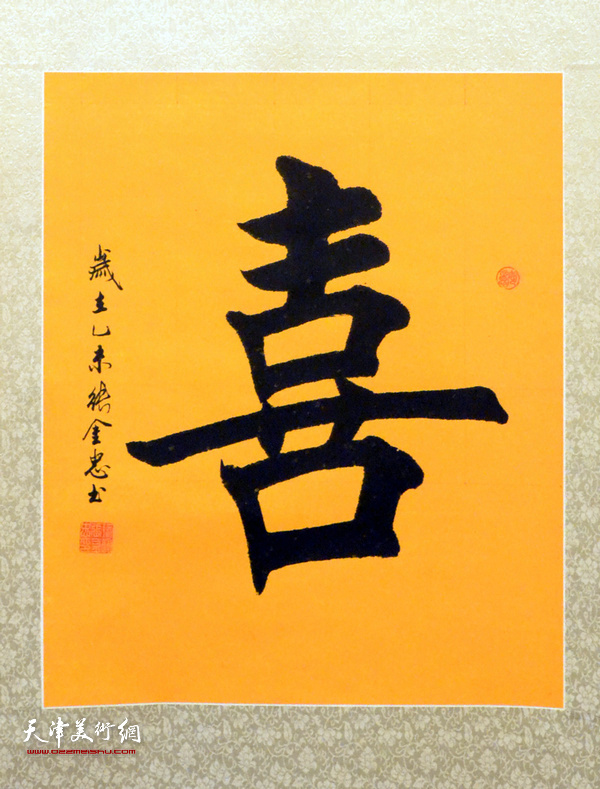 喜
歲在乙未張金忠書
天津美術網
www.022meishu.com